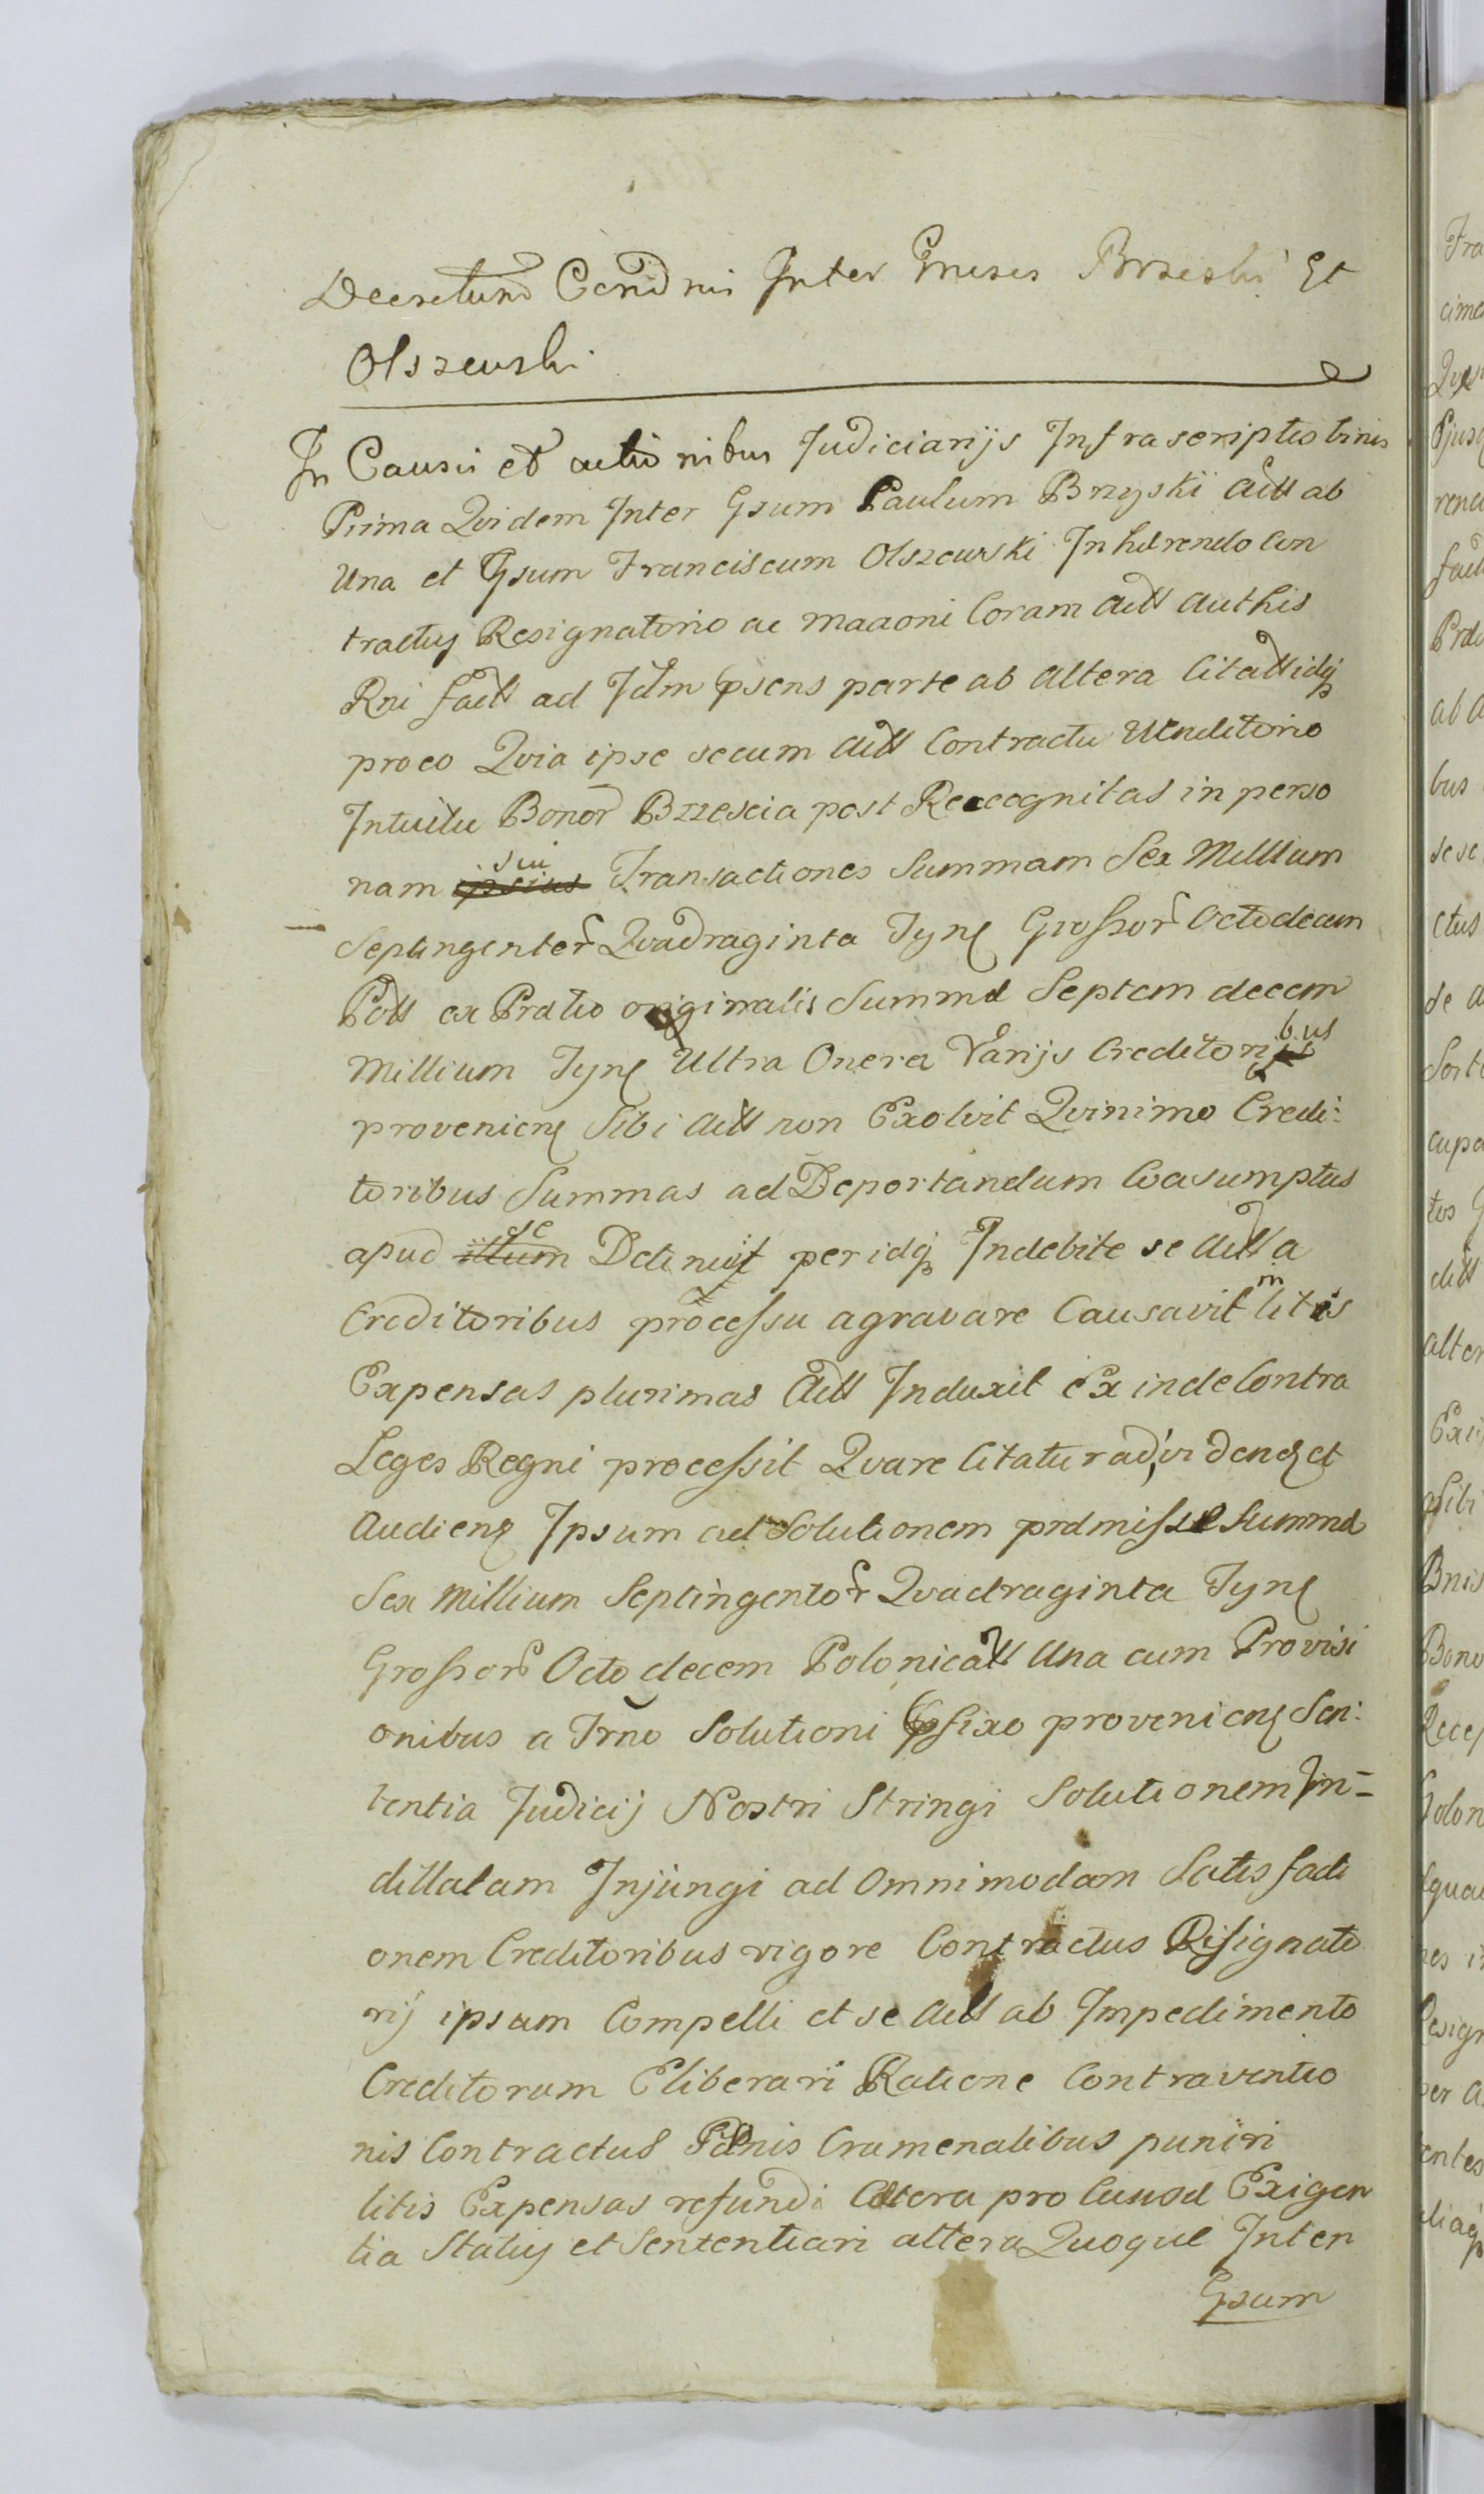 Decretum Cond nis Inter Gnesos Brzeski Et
Olszewski
In Causis et actionibus Judiciarijs Infrascriptis binis
Prima Qvidem Inter Gsum Paulum Brzyski Actt ab
Una et Gsum Franciscum Olszewski Inhærendo Con
tractuj Resignatorio ac maaoni Coram Actt Authis
Rni factt ad Jdm psens parte ab altera Citattidq
pro eo Qvia ipse secum Actt Contractu Venditorio
Intuitu Bonor Brzescia post Recognitas in perso
nam sui Transactiones Summam Sex Millium
Septingentor Qvadraginta Tynf Grossor Octodecim
Poll ex Prætio originalis Summæ Septem decem
Millium Tynf Ultra Onera Varijs Creditoribus
provenien Sibi Actt non Exolvit Qvinimo Credi:
toribus Summas ad Deportandum Coasumptas
apud se Detinuit per idq Indebite se Actt a
Creditoribus processu agravare Causavit in litis
Expensas plurimas Actt Induxit ex inde Contra
Leges Regni processit Qvare Citatur ad viden et
Audien Ipsum ad Solutionem præmissæ Summæ
Sex Millium Septingentor Qvadraginta Tynf
Grossor Octodecem Polonicatt Una cum Provisi
onibus a Trno Solutioni pfixo provenien Sen:
tentia Judicij Nostri Stringi Solutionem In=
dillatam Injungi ad Omnimodam Satisfacti
onem Creditoribus vigore Contractus Resignato
rij ipsum Compelli et se Actt ab Impedimento
Creditorum Eliberari Ratione Contraventio
nis Contractus Pænis Cramenalibus puniri
litis Expensas refundi Cætera pro Causæ Exigen
tia Statuj et Sententiari altera Quoque Inter
Gsum